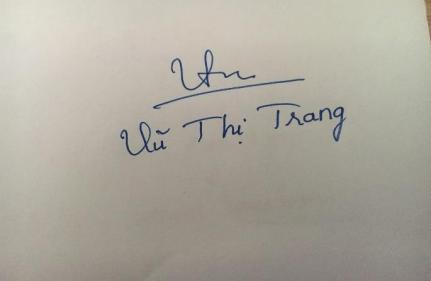 Vũ Thị Trang